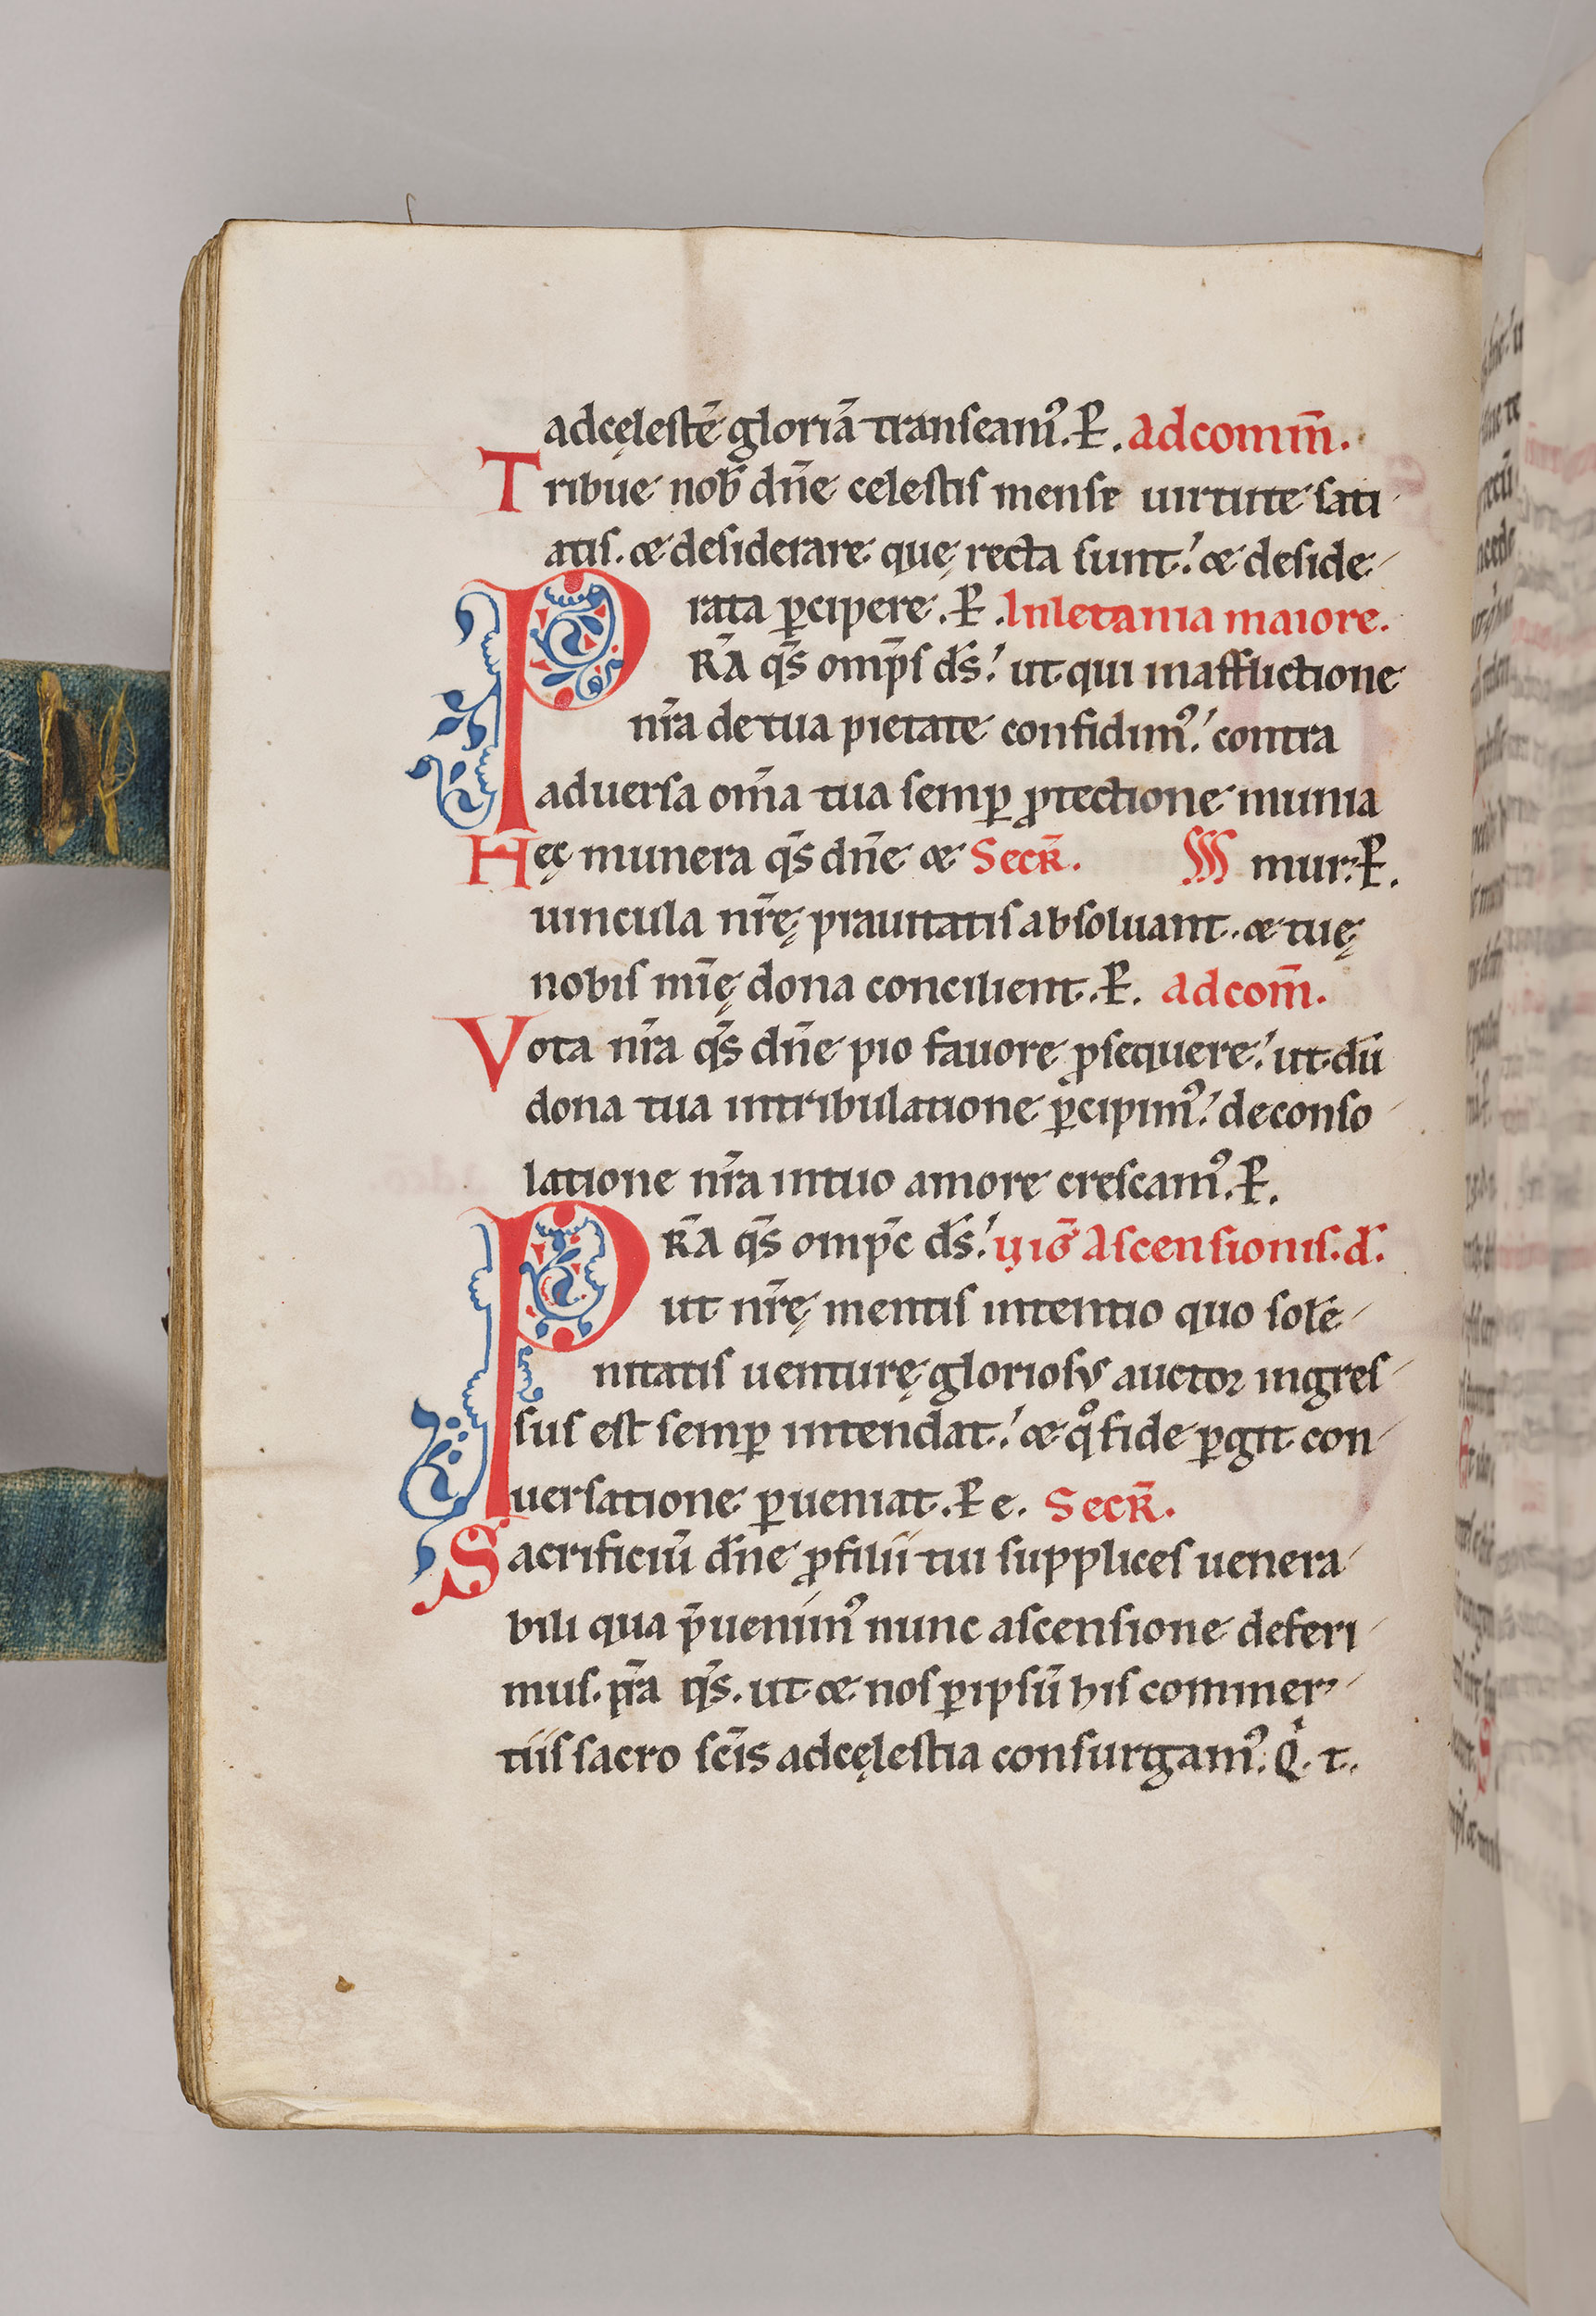 adcęlestē gloriā transeamꝰ. P̵. adcomm̄.
Tribue nob̄ dn̄e celestis mense uirtute sati
atis. & desiderare quę recta sunt. & deside
rata p̄cipere. P̵. Inletania maiore.
PR̄A qs̄ omp̄s ds̄. ut qui inafflictione
nr̄a de tua pietate confidimꝰ. contra
aduersa om̄a tua semꝑ ꝓtectione munia
Hęc munera qs̄ dn̄e & Secr̄. mur. P̵.
uincula nr̄ę prauitatis absoluant. & tuę
nobis mīę dona concilient. P̵. adcom̄.
Vota nr̄a qs̄ dn̄e pio fauore ꝓsequere. ut dū
dona tua intribulatione ꝑcipimꝰ. deconso
latione nr̄a intuo amore crescamꝰ. P̵.
PR̄A qs̄ omp̄c ds̄. uiḡ Ascensionis. d̄.
ut nr̄ę mentis intentio quo solē
nitatis uenturę gloriosus auctor ingres
sus est semꝑ intendat. & qͦ fide ꝑgit con
uersatione ꝑueniat. P̵ e. Secr̄.
Sacrificiū dn̄e ꝓ filii tui supplices uenera
bili qua p̄uenimꝰ nunc ascensione deferi
mus. p̄ra qs̄. ut & nos ꝑ ipsū his commer
tiis sacro sc̄is adcęlestia consurgamꝰ. Q. t.